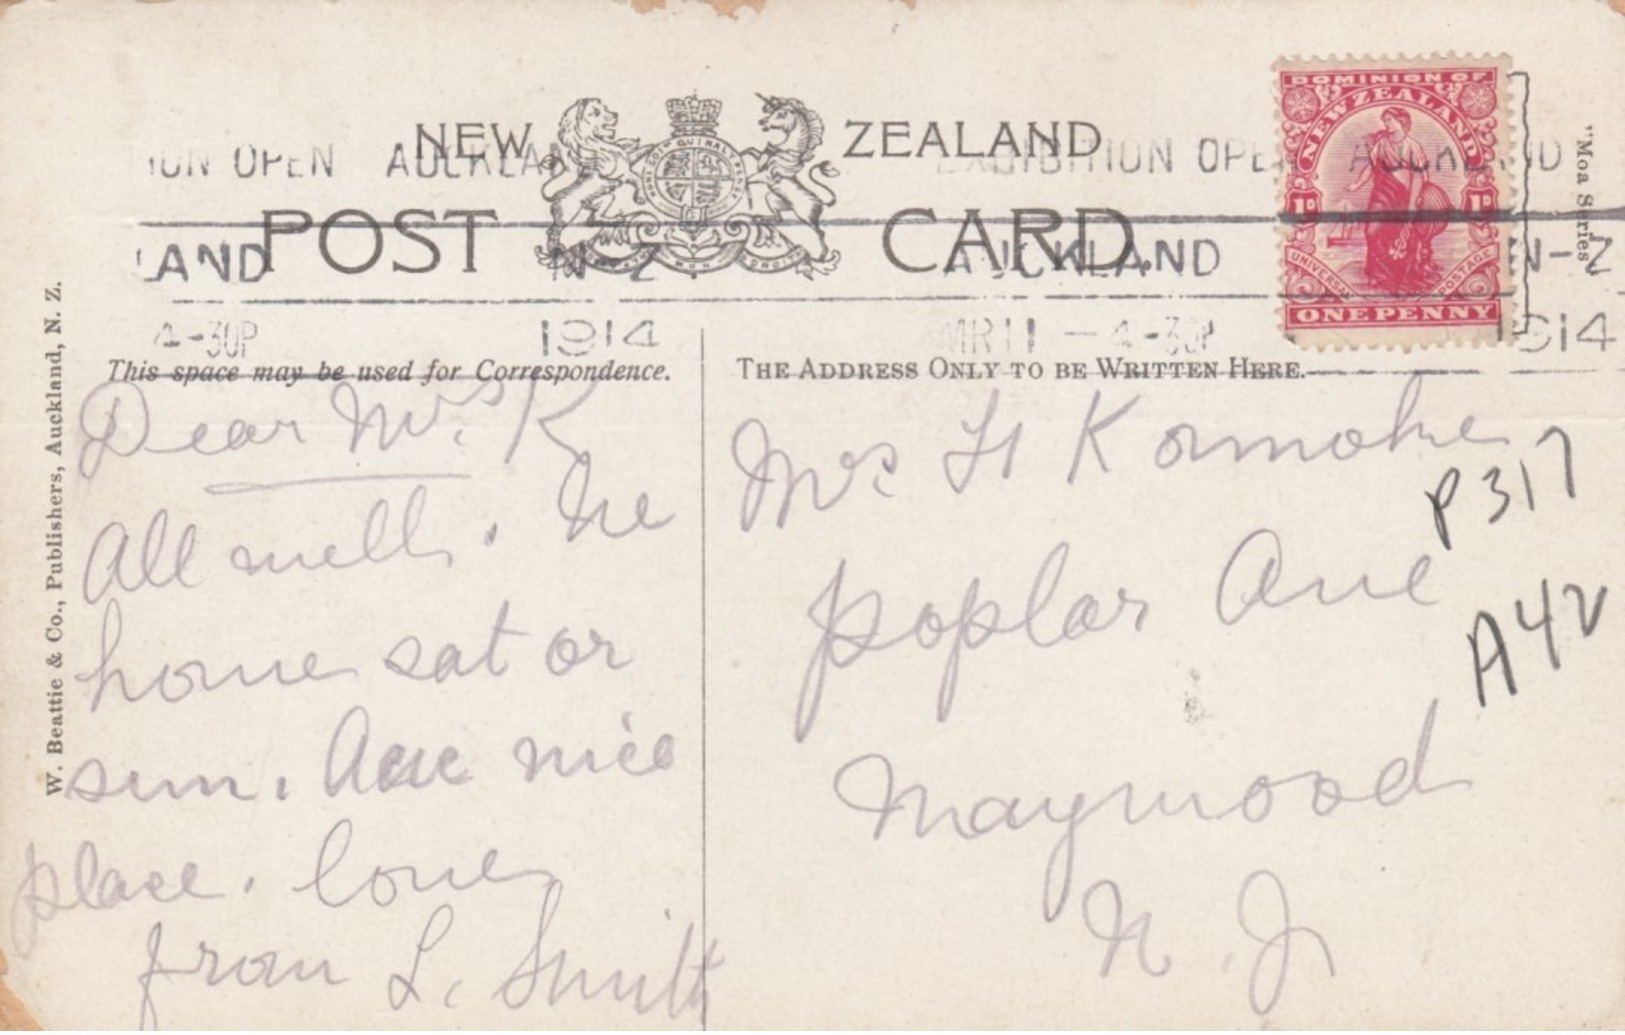 NEW ZEALAND
POST CARD.
DOMINION OF
NEW ZEALAND
1D 1D
UNIVERSAL POSTAGE
ONE PENNY
ION OPEN AUCKLAN EXHIBITION OPEN AUCKLAND
LAND N-Z AUCKLAND N-Z
4-30P 1914 MR 11 - 4-30P 1914
"Moa Series"
W. Beattie & Co., Publishers, Auckland, N. Z.
This space may be used for Correspondence.
Dear Mrs. K
All well. he
home sat or
sun. nice
place. love
from L. Smith
THE ADDRESS ONLY TO BE WRITTEN HERE.
Mrs H
Poplar Ave
Maywood
N. J.
P317
A42